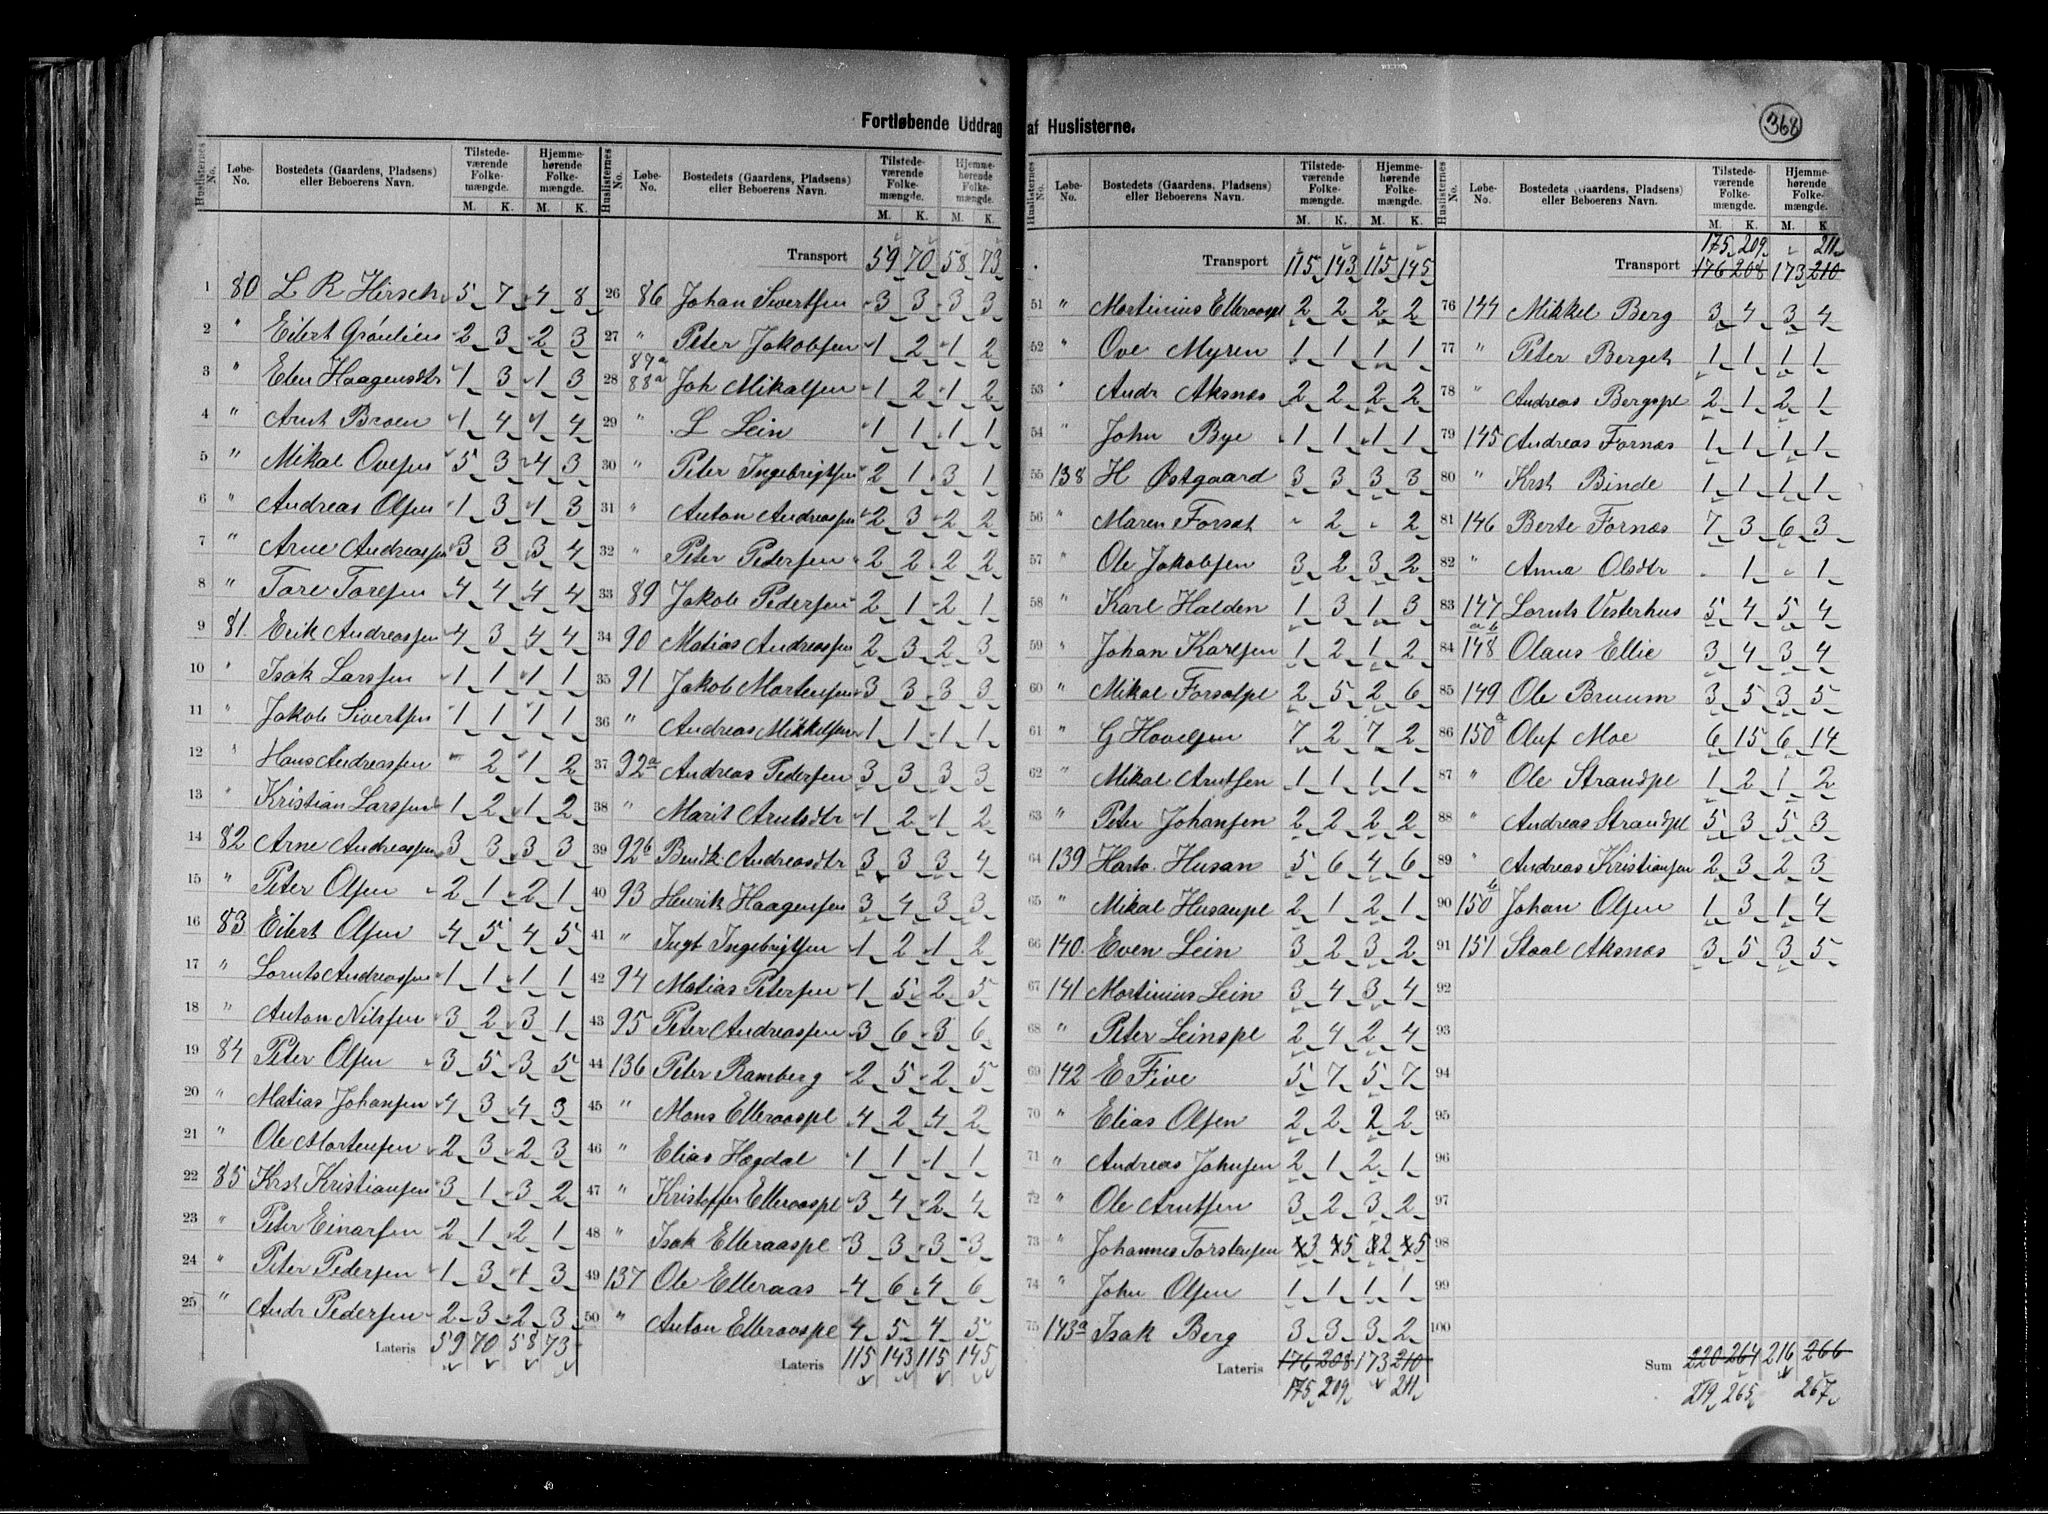 368
Fortløbende Uddrag af Huslisterne.
Huslisternes No. Løbe-No. Bostedets (Gaardens, Pladsens) eller Beboerens Navn. Tilstedeværende Folkemængde. M. K. Hjemmehørende Folkemængde. M. K.
1 80 L R Hirsch 5 7 4 8
2 " Eilert Grønlien 2 3 2 3
3 " Elen Haagensdtr 1 3 1 3
4 " Arnt Broen 1 4 1 4
5 " Mikal Ovesen 5 3 4 3
6 " Andreas Olsen 1 3 1 3
7 " Arne Andreassen 3 3 3 4
8 " Tore Toresen 4 4 4 4
9 81 Erik Andreassen 4 3 4 4
10 " Isak Larssen 1 1 1 1
11 " Jakob Sivertsen 1 1 1 1
12 " Hans Andreassen " 2 1 2
13 " Kristian Larssen 1 2 1 2
14 82 Arne Andreassen 3 3 3 3
15 " Peter Olsen 2 1 2 1
16 83 Eilert Olsen 4 5 4 5
17 " Lornts Andreassen 1 1 1 1
18 " Anton Nilssen 3 2 3 1
19 84 Peter Olsen 3 5 3 5
20 " Matias Johansen 4 3 4 3
21 " Ole Mortensen 2 3 2 3
22 85 Krst Kristiansen 3 1 3 2
23 " Peter Einarsen 2 1 2 1
24 " Peter Pedersen 1 3 1 3
25 " Andr Pedersen 2 3 2 3
Lateris 59 70 58 73
Huslisternes No. Løbe-No. Bostedets (Gaardens, Pladsens) eller Beboerens Navn. Tilstedeværende Folkemængde. M. K. Hjemmehørende Folkemængde. M. K.
Transport 59 70 58 73
26 86 Johan Sivertsen 3 3 3 3
27 " Peter Jakobsen 1 2 1 2
87a
28 88a Joh Mikalsen 1 2 1 2
29 " L Lein 1 1 1 1
30 " Peter Ingebrigtsen 2 1 3 1
31 " Anton Andreassen 2 3 2 2
32 " Peter Pedersen 2 2 2 2
33 89 Jakob Pedersen 2 1 2 1
34 90 Matias Andreassen 2 3 2 3
35 91 Jakob Mortensen 3 3 3 3
36 " Andreas Mikkelsen 1 1 1 1
37 92a Andreas Pedersen 3 3 3 3
38 " Marit Arntsdtr 1 2 1 2
39 92b Bendk. Andreasdtr 3 3 3 4
40 93 Henrik Haagensen 3 4 3 3
41 " Ingt Ingebrigtsen 1 2 1 2
42 94 Matias Petersen 1 5 2 5
43 95 Peter Andreassen 3 6 3 6
44 136 Peter Ramberg 2 5 2 5
45 " Mons Elleraaspl 4 2 4 2
46 " Elias Hægdal 1 1 1 1
47 " Kristoffer Elleraaspl 3 4 2 4
48 " Isak Elleraaspl 3 3 3 3
49 137 Ole Elleraas 4 6 4 6
50 " Anton Elleraaspl 4 5 4 5
Lateris 115 143 115 145
Huslisternes No. Løbe-No. Bostedets (Gaardens, Pladsens) eller Beboerens Navn. Tilstedeværende Folkemængde. M. K. Hjemmehørende Folkemængde. M. K.
Transport 115 143 115 145
51 " Martinius Elleraaspl 2 2 2 2
52 " Ove Myren 1 1 1 1
53 " Andr Aksnæs 2 2 2 2
54 " John Bye 1 1 1 1
55 138 H Østgaard 3 3 3 3
56 " Maren Forsæt " 2 " 2
57 " Ole Jakobsen 3 2 3 2
58 " Karl Halden 1 3 1 3
59 " Johan Karlsen 1 2 1 2
60 " Mikal Forsætpl 2 5 2 6
61 " G Hovelsen 7 2 7 2
62 " Mikal Arntsen 1 1 1 1
63 " Peter Johansen 2 2 2 2
64 139 Hartv. Husan 5 6 4 6
65 " Mikal Husanpl 2 1 2 1
66 140. Even Lein 3 2 3 2
67 141 Martinius Lein 3 4 3 4
68 " Peter Leinspl 2 4 2 4
69 142 E Five 5 7 5 7
70 " Elias Olsen 2 2 2 2
71 " Andreas Johnsen 2 1 2 1
72 " Ole Arntsen 3 2 3 2
73 " Johannes Torstensen 3 5 2 5
74 " John Olsen 1 1 1 1
75 143a Isak Berg 3 3 3 2
Lateris 176 208 173 210
175 209 211
Huslisternes No. Løbe-No. Bostedets (Gaardens, Pladsens) eller Beboerens Navn. Tilstedeværende Folkemængde. M. K. Hjemmehørende Folkemængde. M. K
175 209 " 211
Transport 176 208 173 210
76 144 Mikkel Berg 3 4 3 4
77 " Peter Berget 1 1 1 1
78 " Andreas Bergspl 2 1 2 1
79 145 Andreas Fornæs 1 1 1 1
80 " Krst Binde 1 1 1 1
81 146 Berte Fornæs 7 3 6 3
82 " Anna Olsdtr " 1 " 1
83 147 Lornts Vesterhus 5 4 5 4
84 148 a b Olaus Ellie 3 4 3 4
85 149 Ole Bruum 3 5 3 5
86 150a Oluf Moe 6 15 6 14
87 " Ole Strandpl 1 2 1 2
88 " Andreas Strandpl 5 3 5 3
89 " Andreas Kristiansen 2 3 2 3
90 150b Johan Olsen 1 3 1 4
91 151 Staal Aksnæs 3 5 3 5
92
93
94
95
96
97
98
99
100
Sum 220 264 216 266
219 265 267